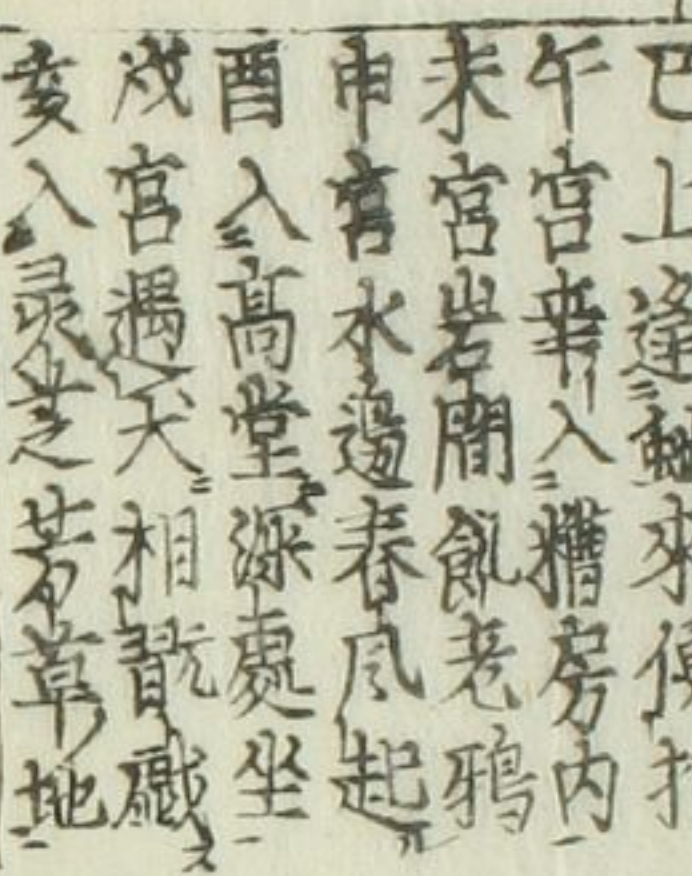 巳上逢蛇來便打
午宮舉入糟房内
未宮岩間飢老鴉
申宮水邊春风起
酉入高堂深處坐
戌宮遇犬相
亥入灵芝芳草地